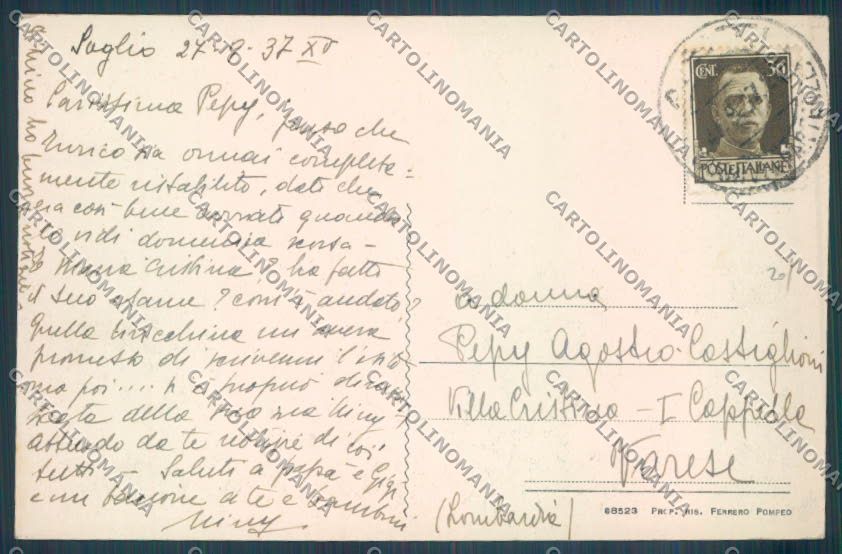 Soglio 27-9-37 XV
Carissima Pepy, penso che
Enrico sia ormai completa=
mente ristabilito, dato che
era così bene avviato quando
lo vidi domenica scorsa -
e Maria Cristina? ha fatto
il suo esame? com'è andato?
Quella birichina mi aveva
promesso di scrivermi l'esito
ma poi.... s'è proprio dimen
ticata della sua zia Niny!
attendo da te notizie di voi
tutti - Saluti a papà e Gigi
e un bacione a te e bambini
Niny.
CENT. 50
POSTE ITALIANE
a donna
Pepy Agosteo-Castiglioni
Villa Cristina - I Cappella
Varese
(Lombardia)
68523 PROP. RIS. FERRERO POMPEO
CARTOLINOMANIA